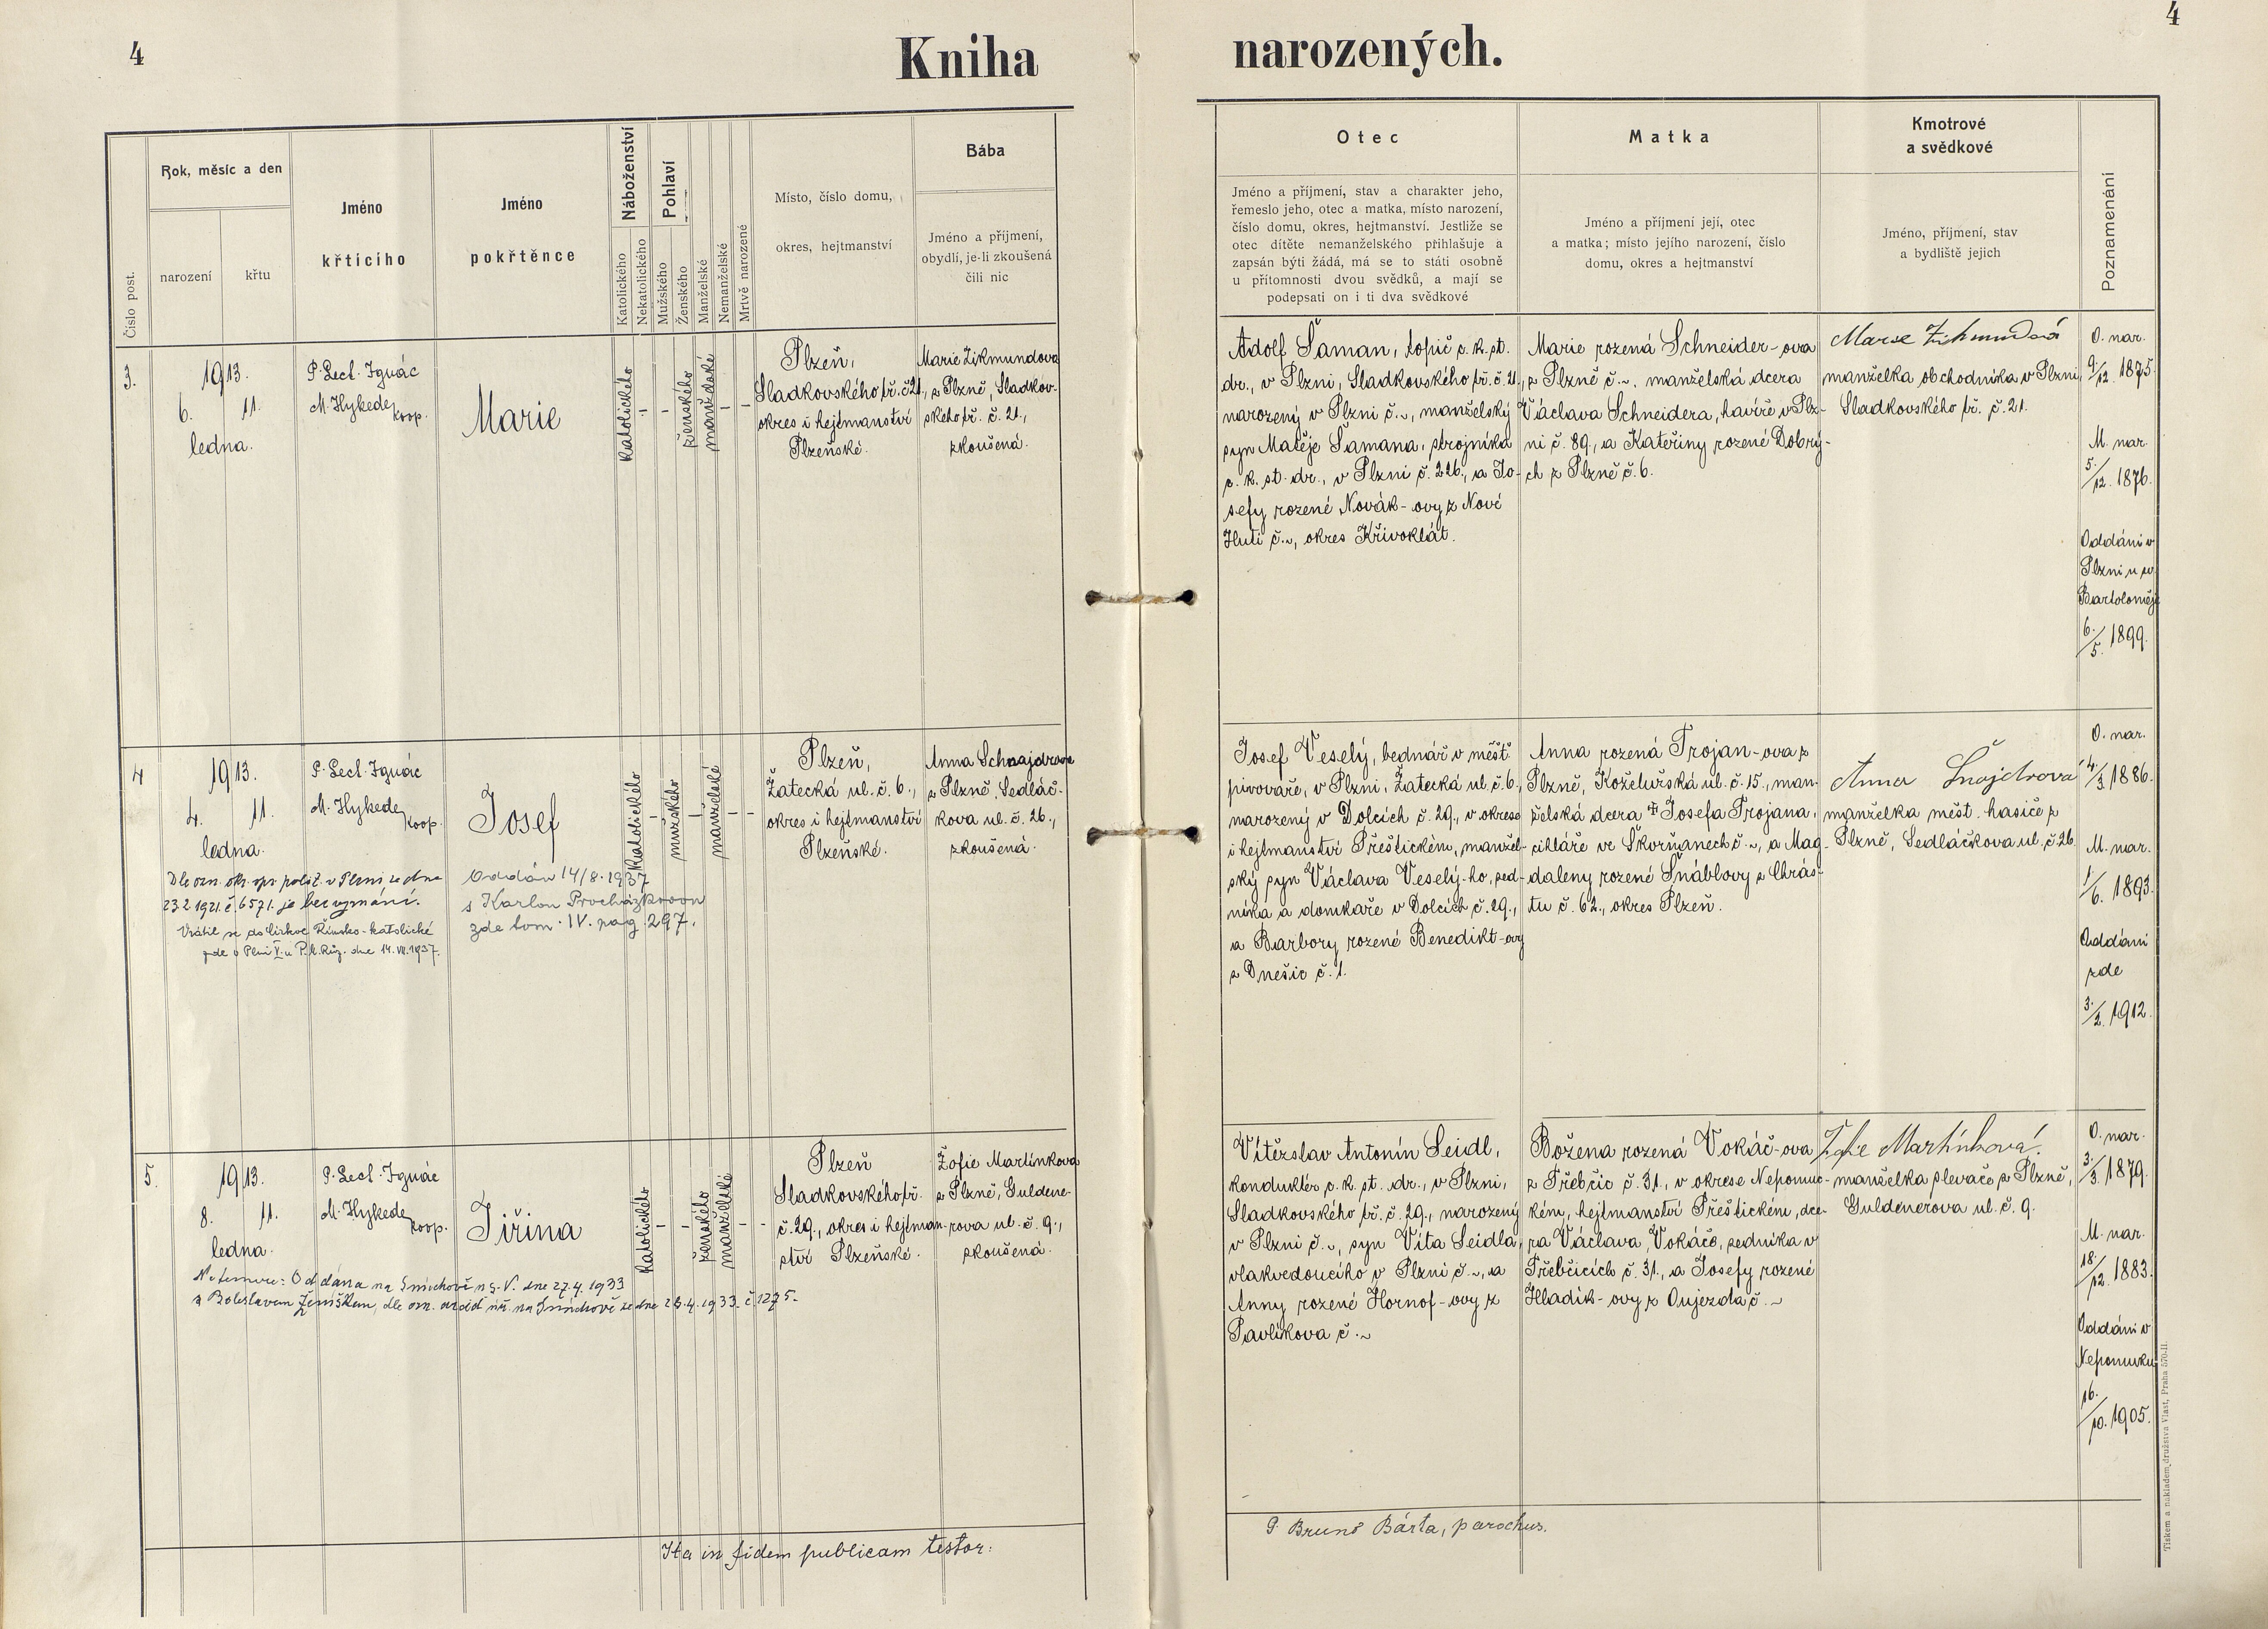 4
Kniha
narozených.
4
Číslo post.
Rok, měsíc a den
narození
křtu
Jméno
křtícího
Jméno
pokřtěnce
Náboženství
Katolického
Nekatolického
Pohlaví
Mužského
Ženského
Manželské
Nemanželské
Mrtvě narozené
Místo, číslo domu,
okres, hejtmanství
Bába
Jméno a příjmení,
obydlí, je-li zkoušená
čili nic
Otec
Jméno a příjmení, stav a charakter jeho,
řemeslo jeho, otec a matka, místo narození,
číslo domu, okres, hejtmanství. Jestliže se
otec dítěte nemanželského přihlašuje a
zapsán býti žádá, má se to státi osobně
u přítomnosti dvou svědků, a mají se
podepsati on i ti dva svědkové
Matka
Jméno a příjmení její, otec
a matka; místo jejího narození, číslo
domu, okres a hejtmanství
Kmotrové
a svědkové
Jméno, příjmení, stav
a bydliště jejich
Poznamenání
3.
1913.
6. 11.
ledna.
P. Lect. Ignác
M. Hykede,
koop.
Marie
katolického
–
–
ženského
manželské
–
–
Plzeň,
Sladkovského tř. č. 21,
okres i hejtmanství
Plzeňské.
Marie Zikmundova
z Plzně, Sladkov-
ského tř. č. 21.,
zkoušená.
Adolf Šaman, topič c. k. st.
dr., v Plzni, Sladkovského tř. č. 21.,
narozený v Plzni č. ~, manželský
syn Matěje Šamana, strojníka
c. k. st. dr., v Plzni č. 226., a Jo-
sefy rozené Novák-ovy z Nové
Huti č. ~, okres Křivoklát.
Marie rozená Schneider-ova
z Plzně č. ~. manželská dcera
Václava Schneidera, havíře v Plz-
ni č. 89., a Kateřiny rozené Dobrý-
ch z Plzně č. 6.
Marie Zikmundová
manželka obchodníka v Plzni,
Sladkovského tř. č. 21.
O. nar.
9./12. 1875.
M. nar.
5./12. 1876.
Oddáni v
Plzni u sv.
Bartoloměje
6./5. 1899.
4
1913.
4. 11.
ledna.
P. Lect. Ignác
M. Hykede,
koop.
Josef
katolického
–
mužského
–
manželské
–
–
Plzeň,
Žatecká ul. č. 6.,
okres i hejtmanství
Plzeňské.
Anna Schnajdrova
z Plzně, Sedláč-
kova ul. č. 26.,
zkoušená.
Dle ozn. okr. spr. polit. v Plzni ze dne
23.2.1921. č. 6571. je bez vyznání.
Vrátil se do církve Římsko-katolické
zde v Plzni dne 14. VII. 1937.
Oddán 14/8. 1937
s Karlou Procházkovou
zde tom. IV. pag. 297.
Josef Veselý, bednář v měšť.
pivováře, v Plzni, Žatecká ul. č. 6.,
narozený v Dolcích č. 29., v okrese
i hejtmanství Přeštickém, manžel-
ský syn Václava Veselý-ho, sed-
níka a domkaře v Dolcích č. 29.,
a Barbory rozené Benedikt-ovy
z Dnešic č. 1.
Anna rozená Trojan-ova z
Plzně, Koželužská ul. č. 15., man-
želská dcera † Josefa Trojana,
cihláře ve Skvrňanech č. ~, a Mag-
daleny rozené Šnáblovy z Chrás-
tu č. 62., okres Plzeň.
Anna Šnajdrová
manželka měst. hasiče z
Plzně, Sedláčkova ul. č. 26.
O. nar.
4./3. 1886.
M. nar.
1./6. 1893.
Oddáni
zde
3./2. 1912.
5.
1913.
8. 11.
ledna.
P. Lect. Ignác
M. Hykede,
koop.
Jiřina
katolického
–
–
ženského
manželské
–
–
Plzeň
Sladkovského tř.
č. 29., okres i hejtman-
ství Plzeňské.
Žofie Martínkova
z Plzně, Guldene-
rova ul. č. 9.,
zkoušená.
Oddána na Smíchově dne 27.4.1933
s Boleslavem Ženíškem, dle ozn. na Smíchově ze dne 28.4.1933. č. 1275.
Vítězslav Antonín Seidl,
konduktér c. k. st. dr., v Plzni,
Sladkovského tř. č. 29., narozený
v Plzni č. ~, syn Víta Seidla,
vlakvedoucího v Plzni č. ~, a
Anny rozené Hornof-ovy z
Pavlíkova č. ~
Božena rozená Vokáč-ova
z Třebčic č. 31., v okrese Nepomuc-
kém, hejtmanství Přeštickém, dce-
ra Václava Vokáče, sedníka v
Třebčicích č. 31., a Josefy rozené
Hladík-ovy z Oujezda č. ~
Žofie Martínková
manželka slevače z Plzně,
Guldenerova ul. č. 9.
O. nar.
3./3. 1879.
M. nar.
18./12. 1883.
Oddáni v
Nepomuku
16./10. 1905.
Ita in fidem publicam testor:
P. Bruno Bárta, parochus.
Tiskem a nakladem družstva Vlast, Praha 570-II.